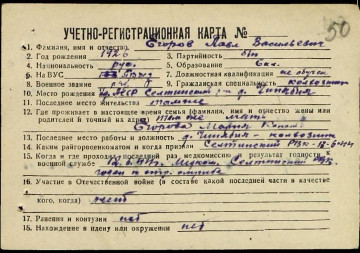 УЧЕТНО-РЕГИСТРАЦИОННАЯ КАРТА №
50
1. Фамилия, имя и отчество Егоров Павел Васильевич
2. Год рождения 1926 3. Партийность б/п
4. Национальность рус. 5. Образование 6 кл.
6. На ВУС 7. Должностная квалификация не обучен
8. Военное звание 9. Гражданская специальность колхозник
10. Место рождения Селтинский
11. Последнее место жительства там же
12. Где проживают в настоящее время семья, имя и отчество жены или
родителей и точный их адрес там же мать
Егорова Мария
13. Последнее место работы и должность колхозник
14. Каким райгорвоенкоматом и когда призван Селтинский РВК
15. Когда и где проходил последний раз медкомиссию, результат годности к
военной службе Селтинский РВК
годен к строевой службе
16. Участие в Отечественной войне (в составе какой последней части в качестве
кого, когда) нет
17. Ранения и контузии нет
18. Нахождение в плену или окружении нет